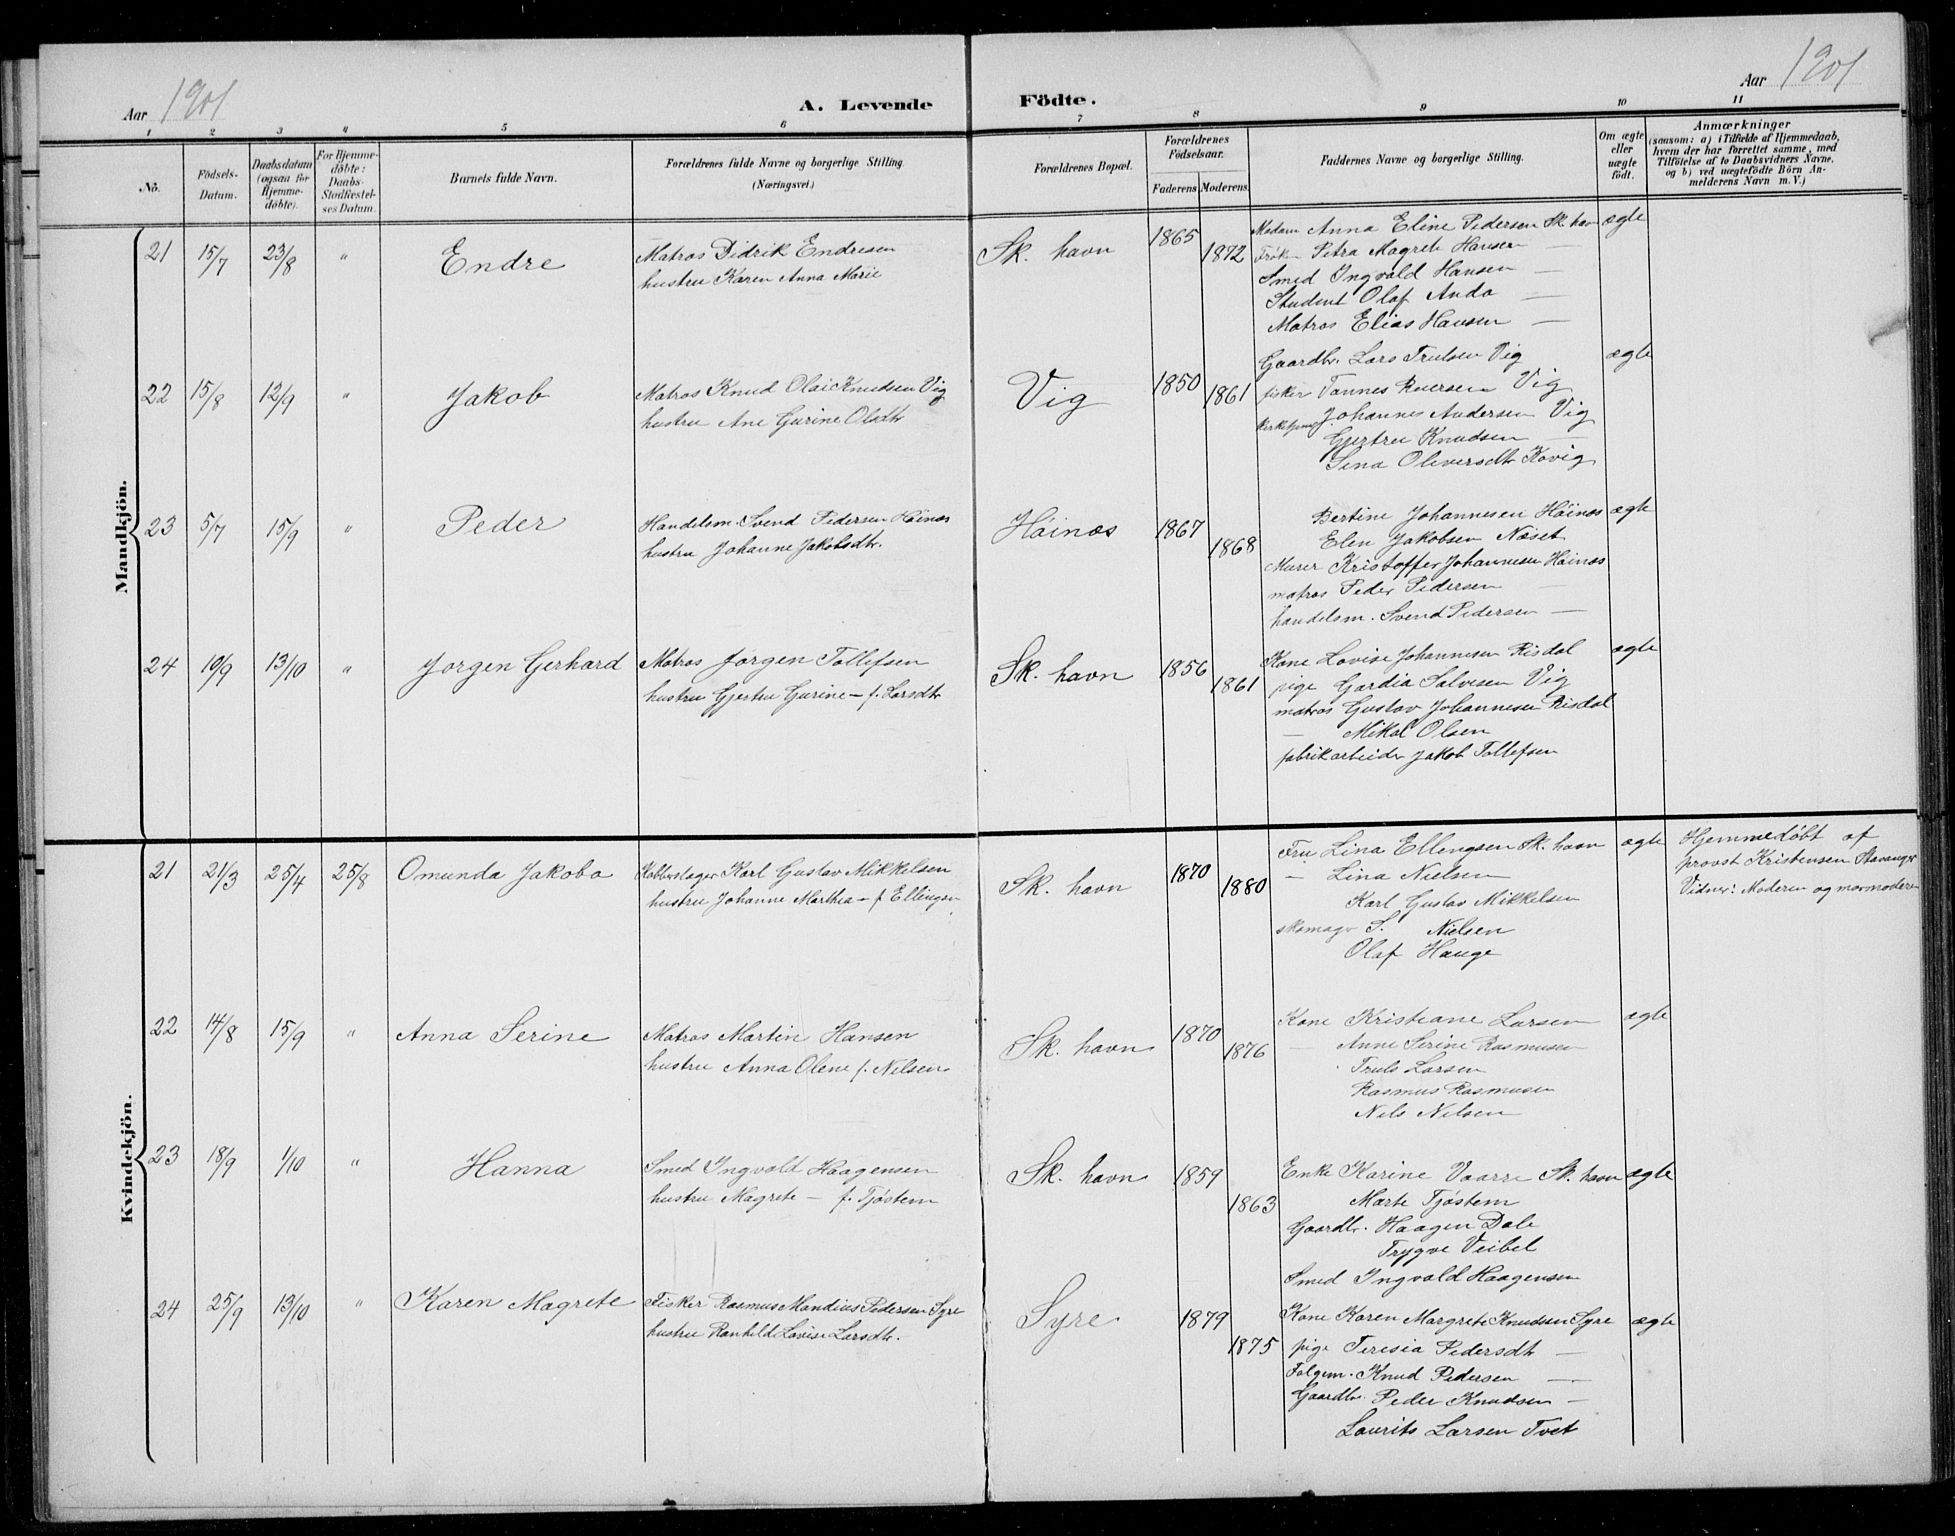 Aar 1901
A. Levende Födte.
Aar 1901
1 2 3 " 5 6 7 8 9 10 11
No.
Födsels-Datum.
Daabsdatum (ogsaa for Hjemme-döbte).
For Hjemme-döbte: Daabs-Stadfæstel-ses Datum.
Barnets fulde Navn.
Forældrenes fulde Navne og borgerlige Stilling.
(Næringsvei.)
Forældrenes Bopæl.
Forældrenes Födselsaar.
Faderens. Moderens.
Faddernes Navne og borgerlige Stilling.
Om ægte eller uægte födt.
Anmærkninger
(saasom: a) i Tilfælde af Hjemmedaab, hvem der har forrettet samme, med Tilföielse af to Daabsvidners Navne, og b) ved uægtefödte Börn An-melderens Navn m. V.)
Mandkjön.
21 15/7 23/8 " Endre
Matros Didrik Endresen
hustru Karen Anna Marie
Sk. havn 1865 1872
Madam Anna Eline Pedersen Sk. havn ægte
Frøken Petra Magrete Hansen —
Smed Ingvald Hansen —
Student Olaf Anda —
Matros Elias Hansen —
22 15/8 12/9 " Jakob
Matros Knud Olai Knudsen Vig
hustru Ane Gurine Olsdtr
Vig 1850 1861
Gaardbr. Lars Trulsen Vig ægte
fisker Tannes Iversen Vig
Kirketjener Johannes Andersen Vig
Gjertru Knudsen —
Sina Oliversdtr Kovig
23 5/7 15/9 " Peder
Handelsm. Svend Pedersen Höinæs
hustru Johanne Jakobsdtr.
Höinæs 1867 1868
Bertine Johannesen Höinæs ægte
Elen Jakobsen Næset
Murer Kristoffer Johannesen Höinæs
matros Peder Pedersen —
handelsm. Svend Pedersen —
24 10/9 13/10 " Jörgen Gerhard
Matros Jörgen Tollefsen
hustru Gjertru Gurine — f. Larsdtr
Sk. havn 1856 1861
Kone Lovise Johannesen Risdal ægte
pige Gardia Salvesen Vig
matros Gustav Johannesen Risdal
— Mikal Olsen
fabrikarbeider Jakob Tollefsen
Kvindekjön.
21 21/3 25/4 25/8 Omunda Jakoba
Kobberslager Karl Gustav Mikkelsen
hustru Johanne Marthea — f. Ellingsen
Sk. havn 1870 1880
Fru Lina Ellengsen Sk. havn ægte
— Lina Nielsen
Karl Gustav Mikkelsen
skomager S. Nielsen
Olaf Hauge
Hjemmedöbt af
provst Kristensen Stavanger
Vidner: Moderen og mormoderen
22 14/8 15/9 " Anna Serine
Matros Martin Hansen
hustru Anna Olene f. Nilsen
Sk. havn 1870 1876
Kone Kristiane Larsen ægte
— Anne Serine Rasmusen
Truls Larsen
Rasmus Rasmusen
Nils Nilsen
23 18/9 1/10 " Hanna
Smed Ingvald Haagensen
hustru Magrete — f. Tjöstem
Sk. havn 1859 1863
Enke Karine Vaarre Sk. havn ægte
Marte Tjöstem
Gaardbr. Haagen Dale
Trygve Veibel
Smed Ingvald Haagensen
24 25/9 13/10 " Karen Magrete
Fisker Rasmus Mandius Pedersen Syre
hustru Ranhild Lovise Larsdtr.
Syre 1879 1875
Kone Karen Margrete Knudsen Syre ægte
pige Teresia Pedersdtr —
Folgem. Knud Pedersen —
Gaardbr. Peder Knudsen —
Laurits Larsen Tvet